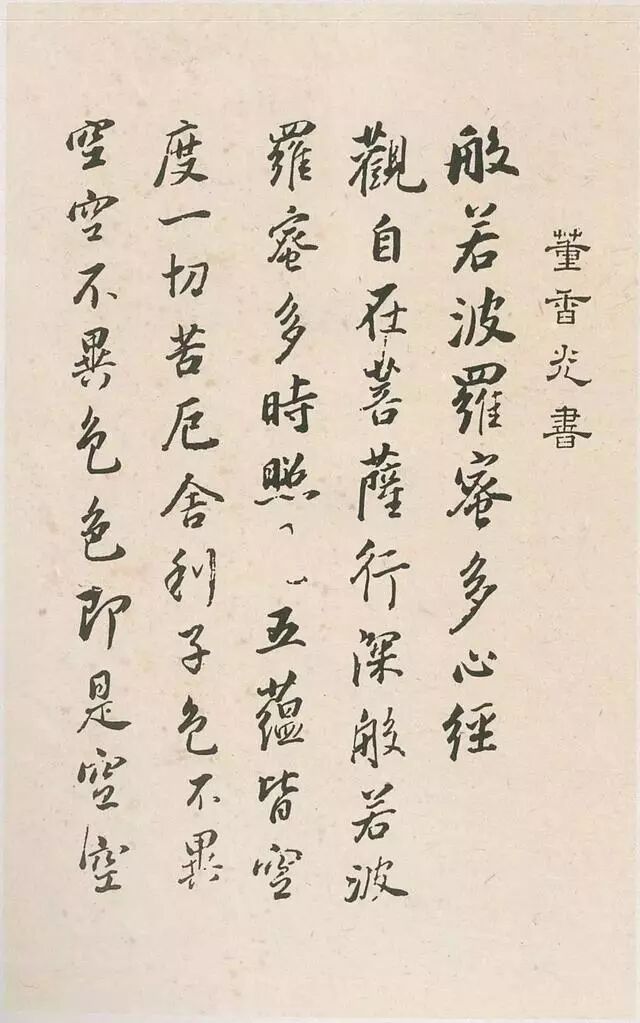 董香光書
般若波羅蜜多心經
觀自在菩薩行深般若波
羅蜜多時照五蘊皆空
度一切苦厄舍利子色不異
空空不異色色即是空空